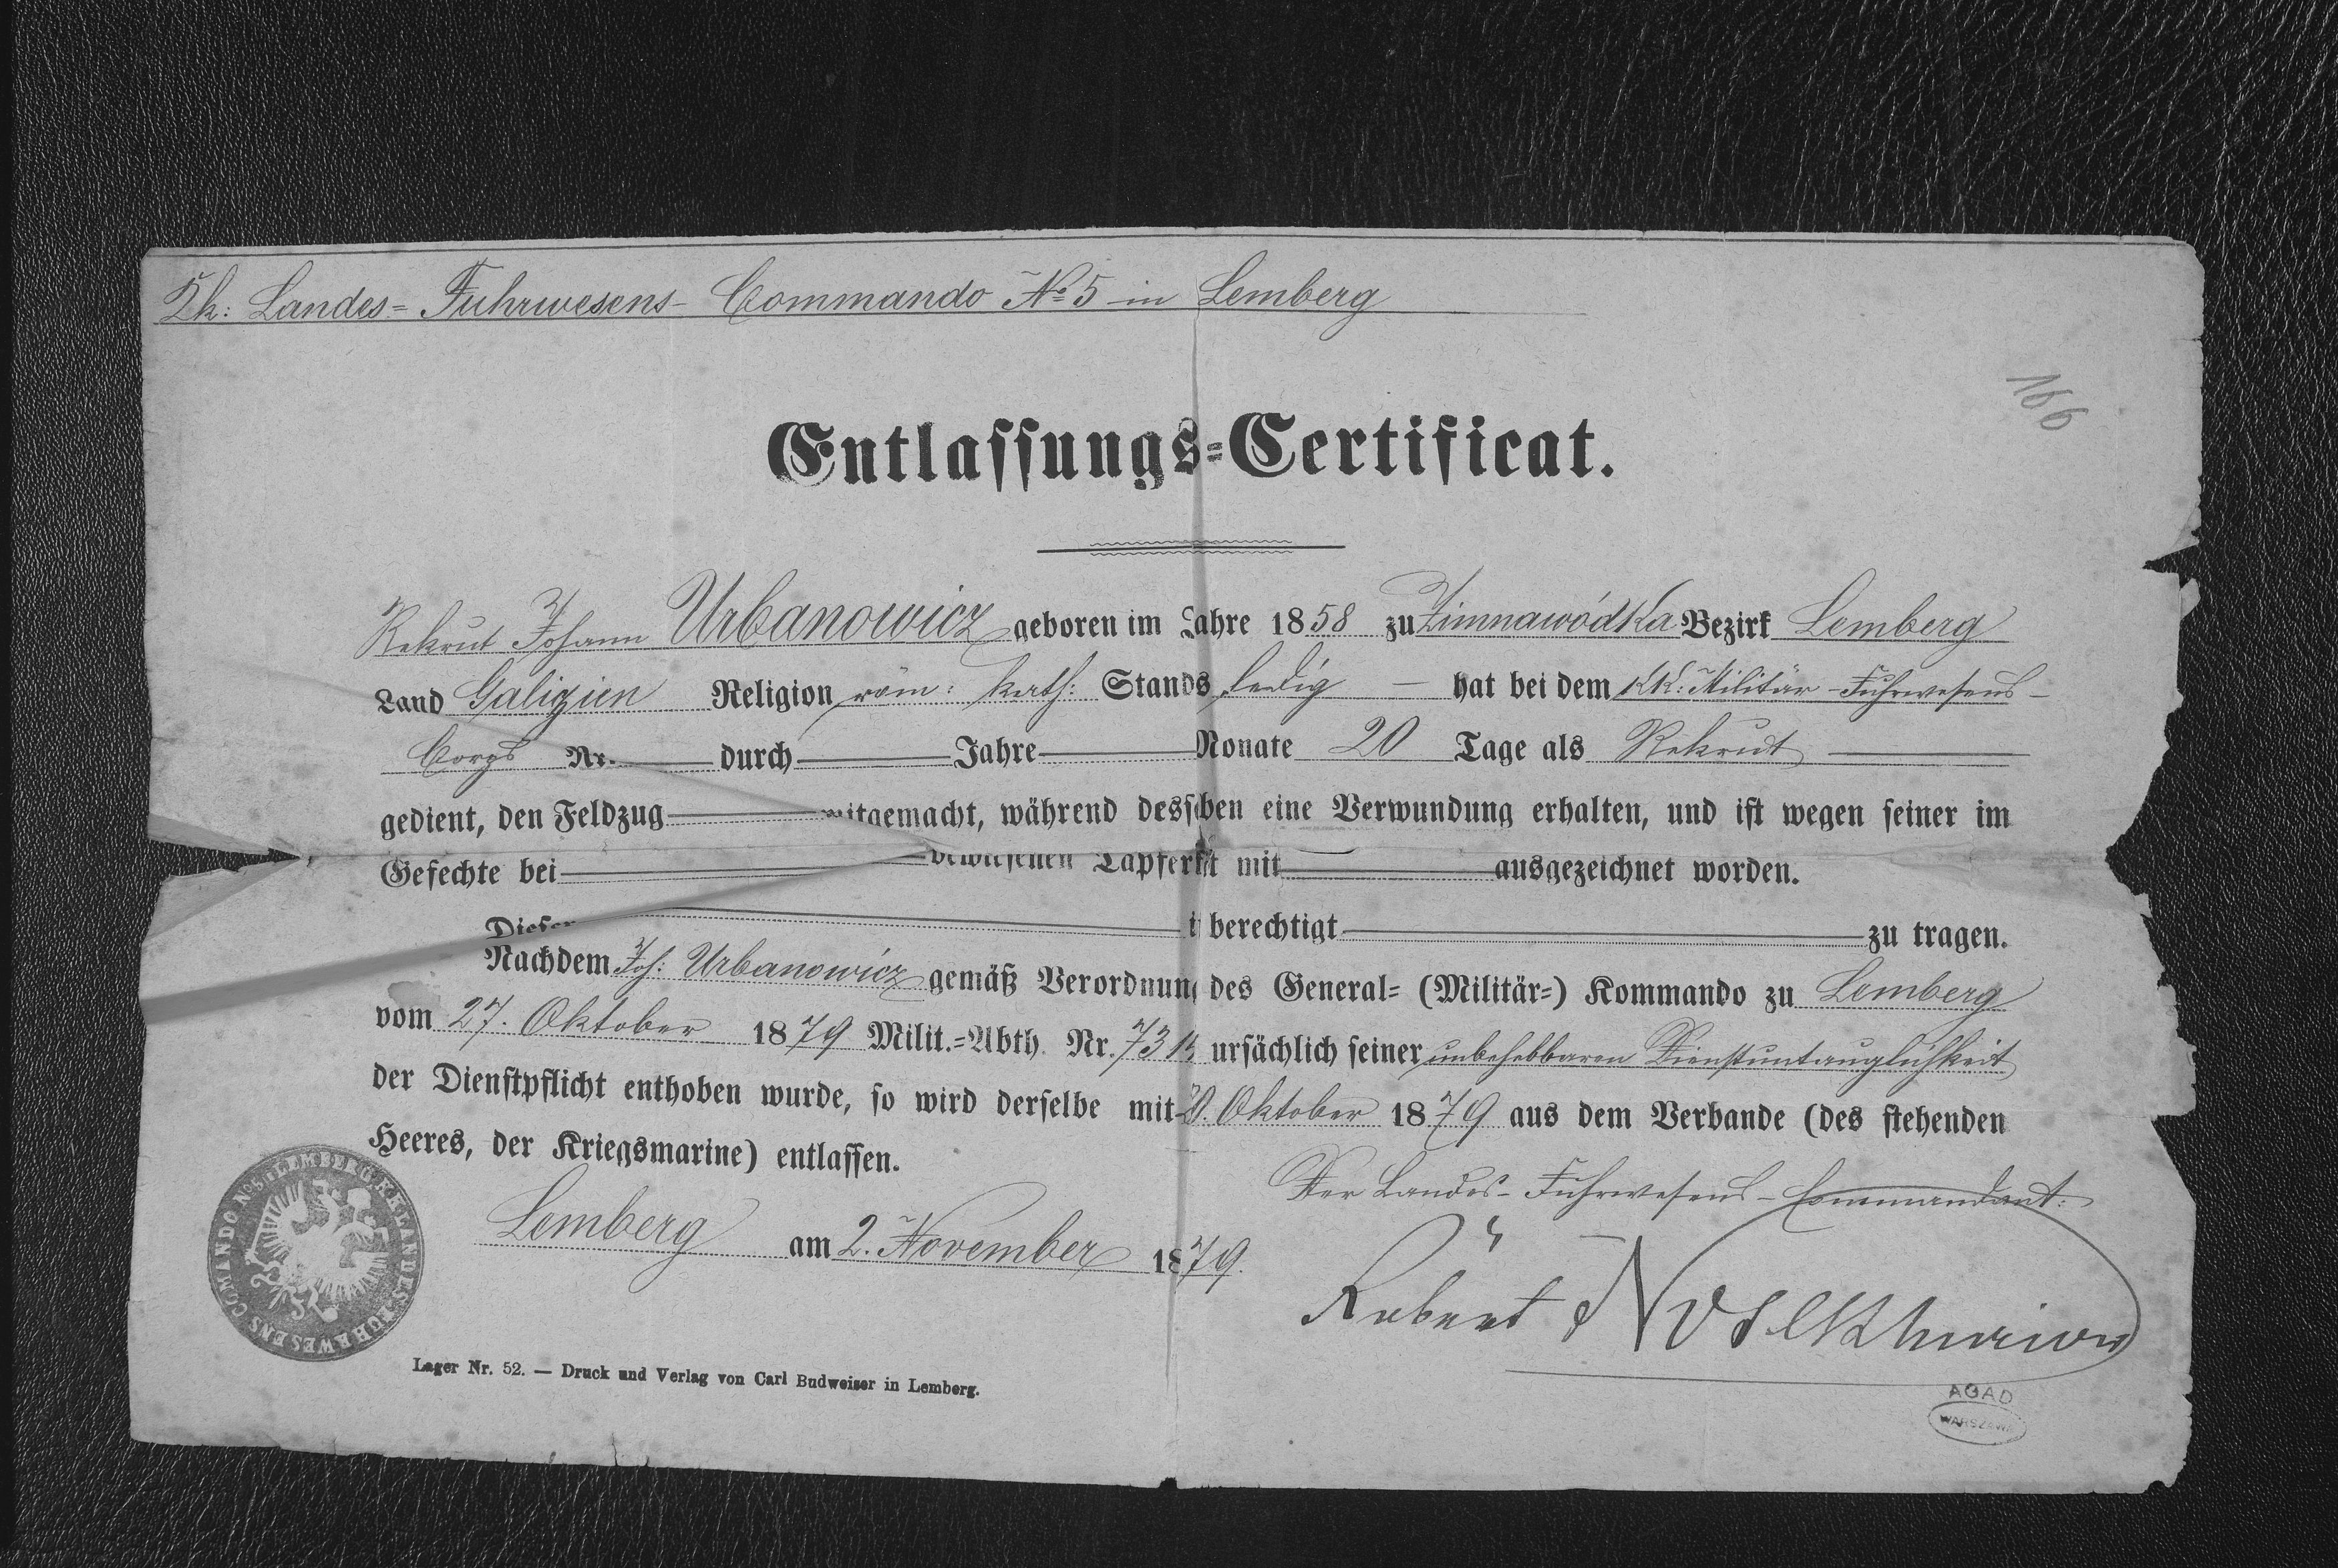 Kk: Landes= Fuhrwesens- Commando No 5 in Lemberg
166
Entlassungs=Certificat.
Rekrut Johann Urbanowicz geboren im Jahre 1858 zu Zimnawódka Bezirk Lemberg
Land Galizien Religion röm: kath: Stands ledig – hat bei dem kk: Militär-Fuhrwesens-
Corps Nr. durch Jahre Monate 20 Tage als Rekrut
gedient, den Feldzug mitgemacht, während desselben eine Verwundung erhalten, und ist wegen seiner im
Gefechte bei bewiesenen Tapferkeit mit ausgezeichnet worden.
Dieser berechtigt zu tragen.
Nachdem Joh: Urbanowicz gemäß Verordnung des General= (Militär=) Kommando zu Lemberg
vom 27. Oktober 1879 Milit.=Abth. Nr. ursächlich seiner unbehebbaren Dienstuntauglichkeit
der Dienstpflicht enthoben wurde, so wird derselbe mit Oktober 1879 aus dem Verbande (des stehenden
Heeres, der Kriegsmarine) entlassen.
Lemberg am 2. November 1879.
Der Landes-Fuhrwesens-Commandant:
Robert
K.K. LANDES-FUHRWESENS COMMANDO No 5 LEMBERG
Lager Nr. 52. — Druck und Verlag von Carl Budweiser in Lemberg.
AGAD
WARSZAWA